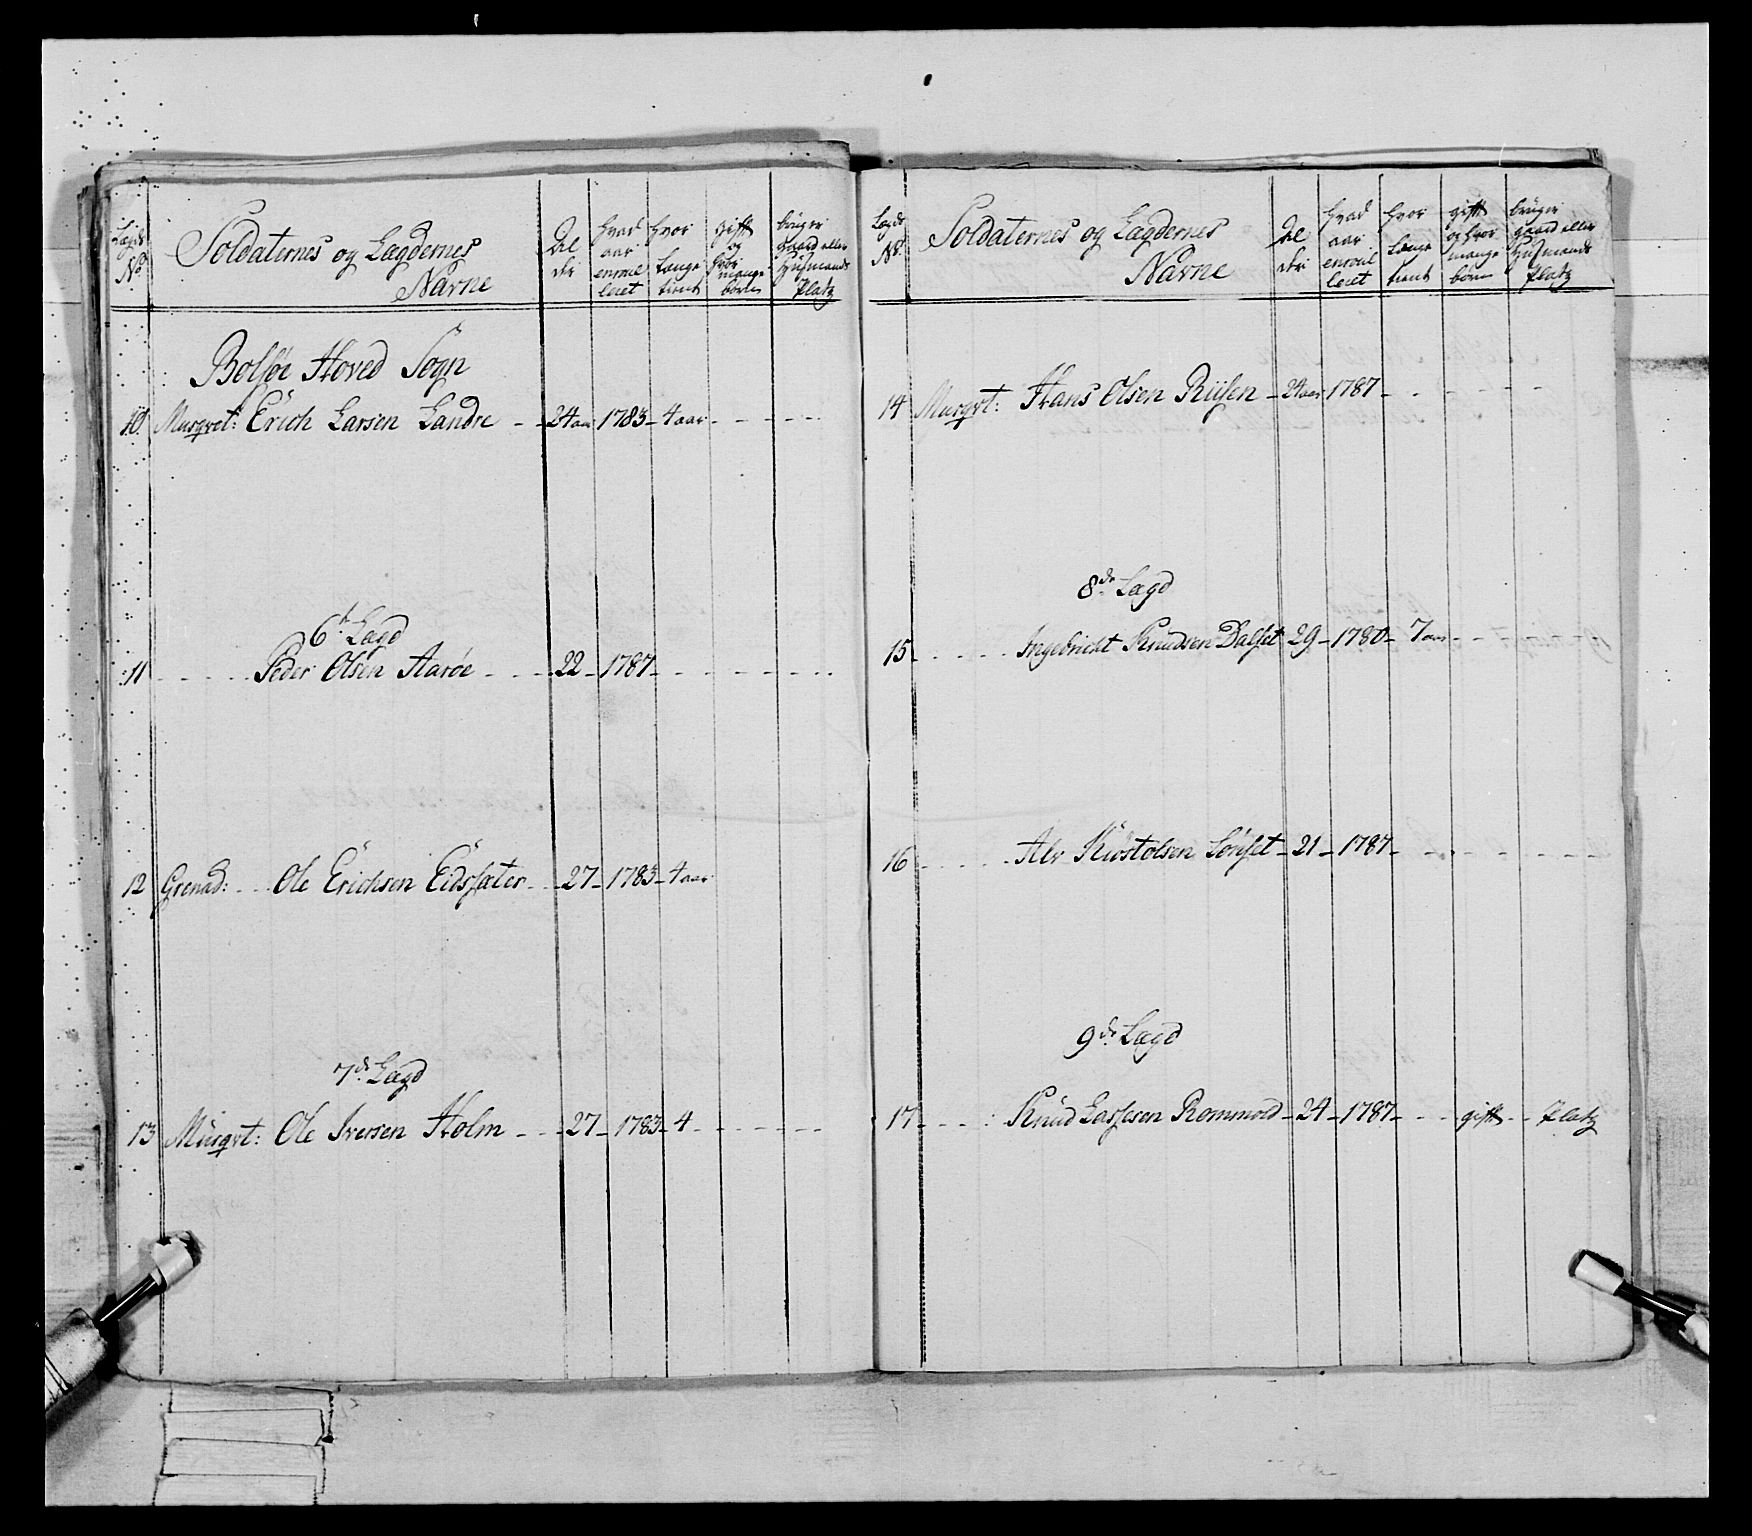 Lægds No
Soldaternes og Lægdernes Navne
Alderi
hvad aar enroulleret
hvor længe tient
gift og hvor mange börn
brüger gaard eller Hüsmands Platz
Bolsöe Hoved Sogn
10 Musqvet: Erich Larsen Landre - 24 aar 1783 - 4 aar
6te Lægd
11 Peder Olsen Aaröe 22 - 1787
12 Grenad: Ole Erichsen Eidssæter 27 - 1783 - 4 aar
7de Lægd
13 Müsqvt: Ole Iversen Holm 27 - 1783 - 4
Lægds No
Soldaternes og Lægdernes Navne
Alderi
hvad aar enroulleret
hvor længe tient
gift og hvor mange börn
brüger gaard eller Hüsmands Platz
14 Musqvt: Hans Olsen Riisen - 24 aar 1787
8de Lægd
15 Ingebricht Knudsen Dalset 29 - 1780 - 7 aar
16 Alv Sönset - 21 - 1787
9de Lægd
17 Knüd Lassesen - 24 - 1787 - gift - Platz